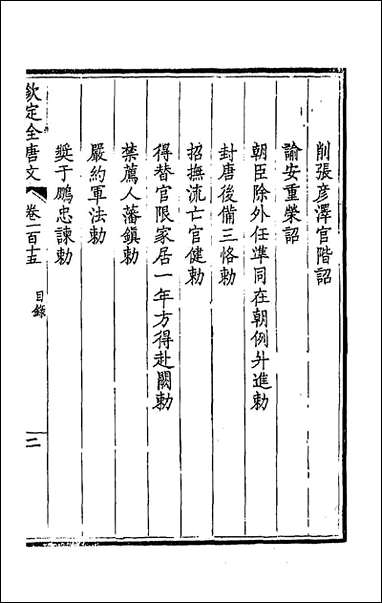 削張彥澤官階詔
諭安重榮詔
朝臣除外任準同在朝例升進敕
封唐後備三恪敕
招撫流亡官健敕
得替官限家居一年方得赴闕敕
禁薦人藩鎭敕
嚴約軍法敕
奬于鵬忠諫敕
欽定全唐文 卷一百十五 目錄 二